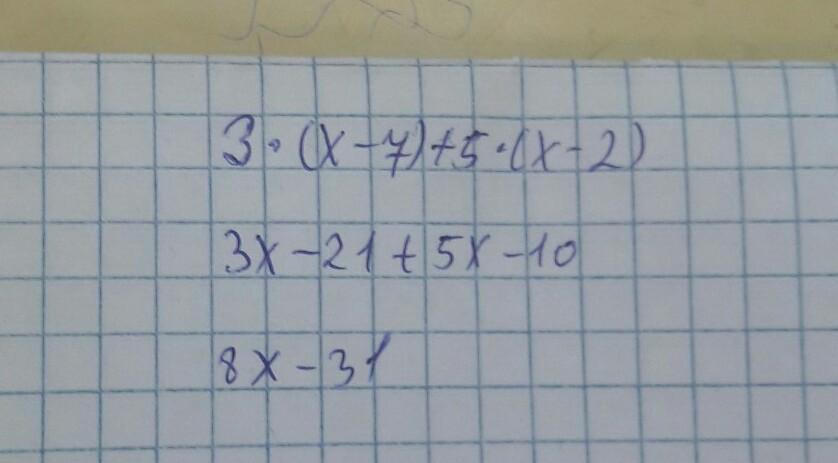 3·(x-7)+5·(x-2)
3x-21+5x-10
8x-31